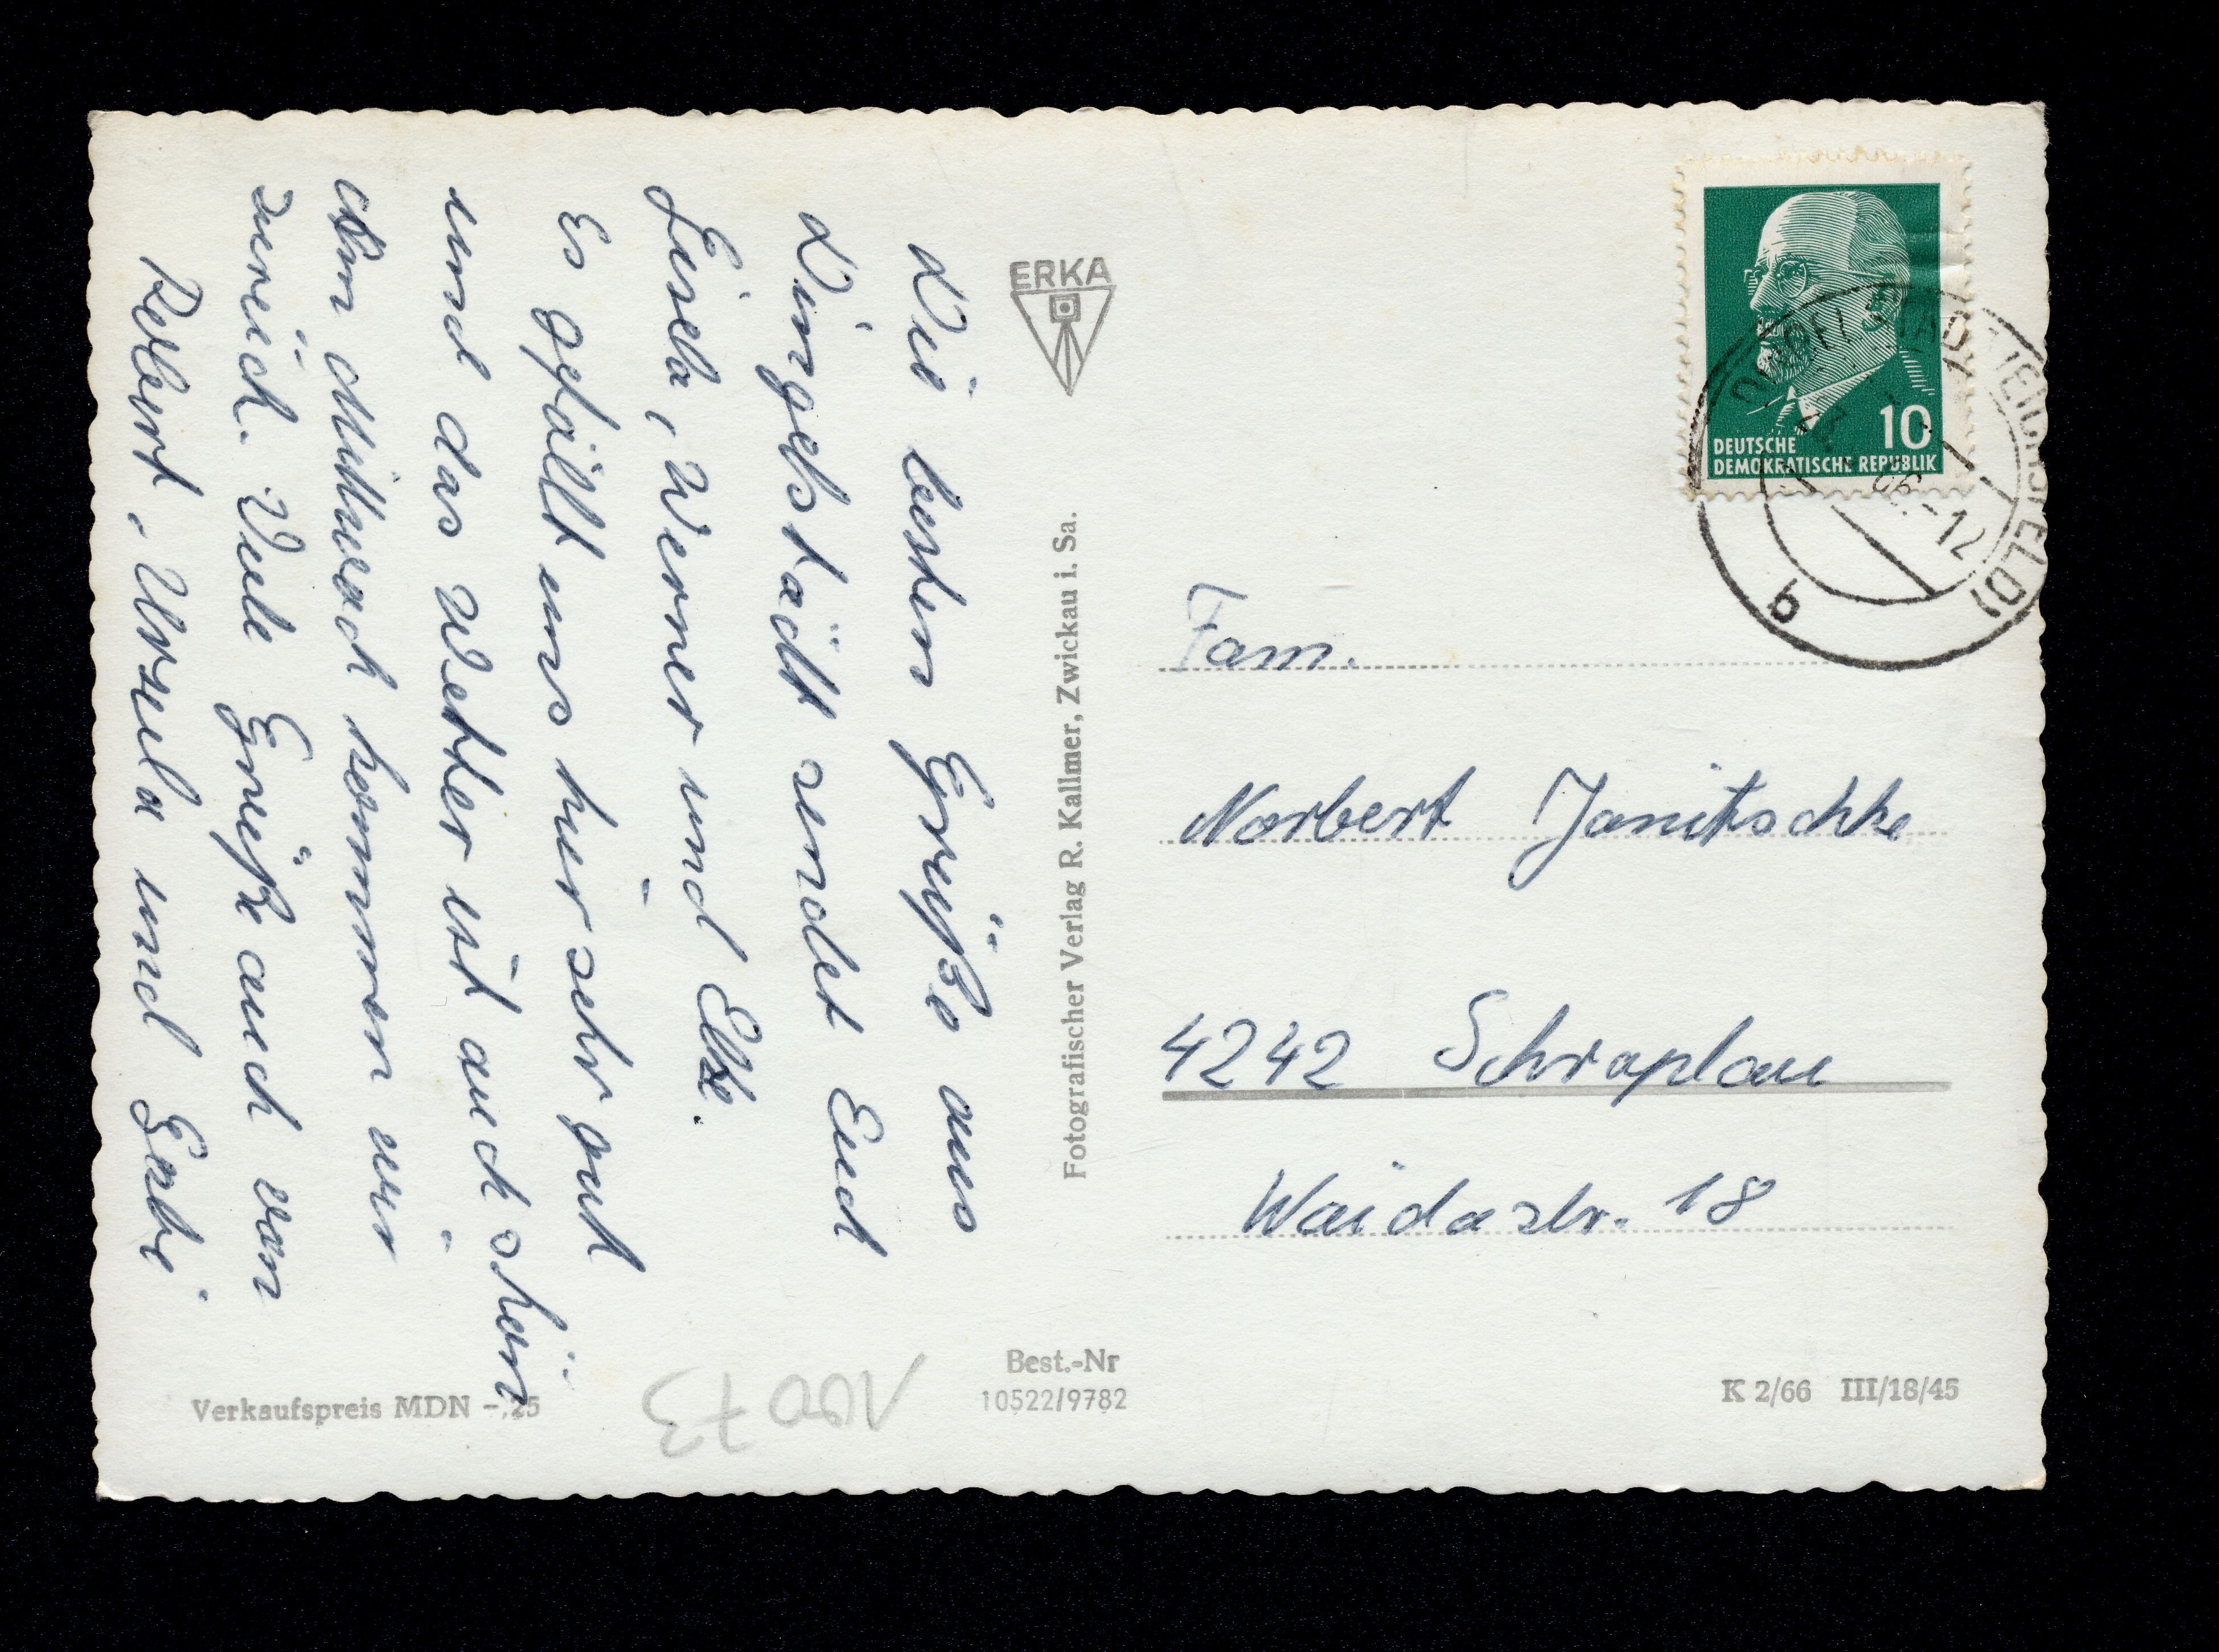 Die besten Grüße aus
Dingelstädt sendet Euch
Gisela, Werner und Elke.
Es gefällt uns hier sehr gut
und das Wetter ist auch schön
Am Mittwoch kommen wir
zurück. Viele Grüße auch von
Robert, Ursula und Gabi.
ERKA
Fotografischer Verlag R. Kallmer, Zwickau i. Sa.
10
DEUTSCHE
DEMOKRATISCHE REPUBLIK
66.-12
b
Fam.
Norbert Janitschke
4242 Schraplau
Waidastr. 18
Verkaufspreis MDN -,25
10073
Best.-Nr
10522/9782
K 2/66 III/18/45